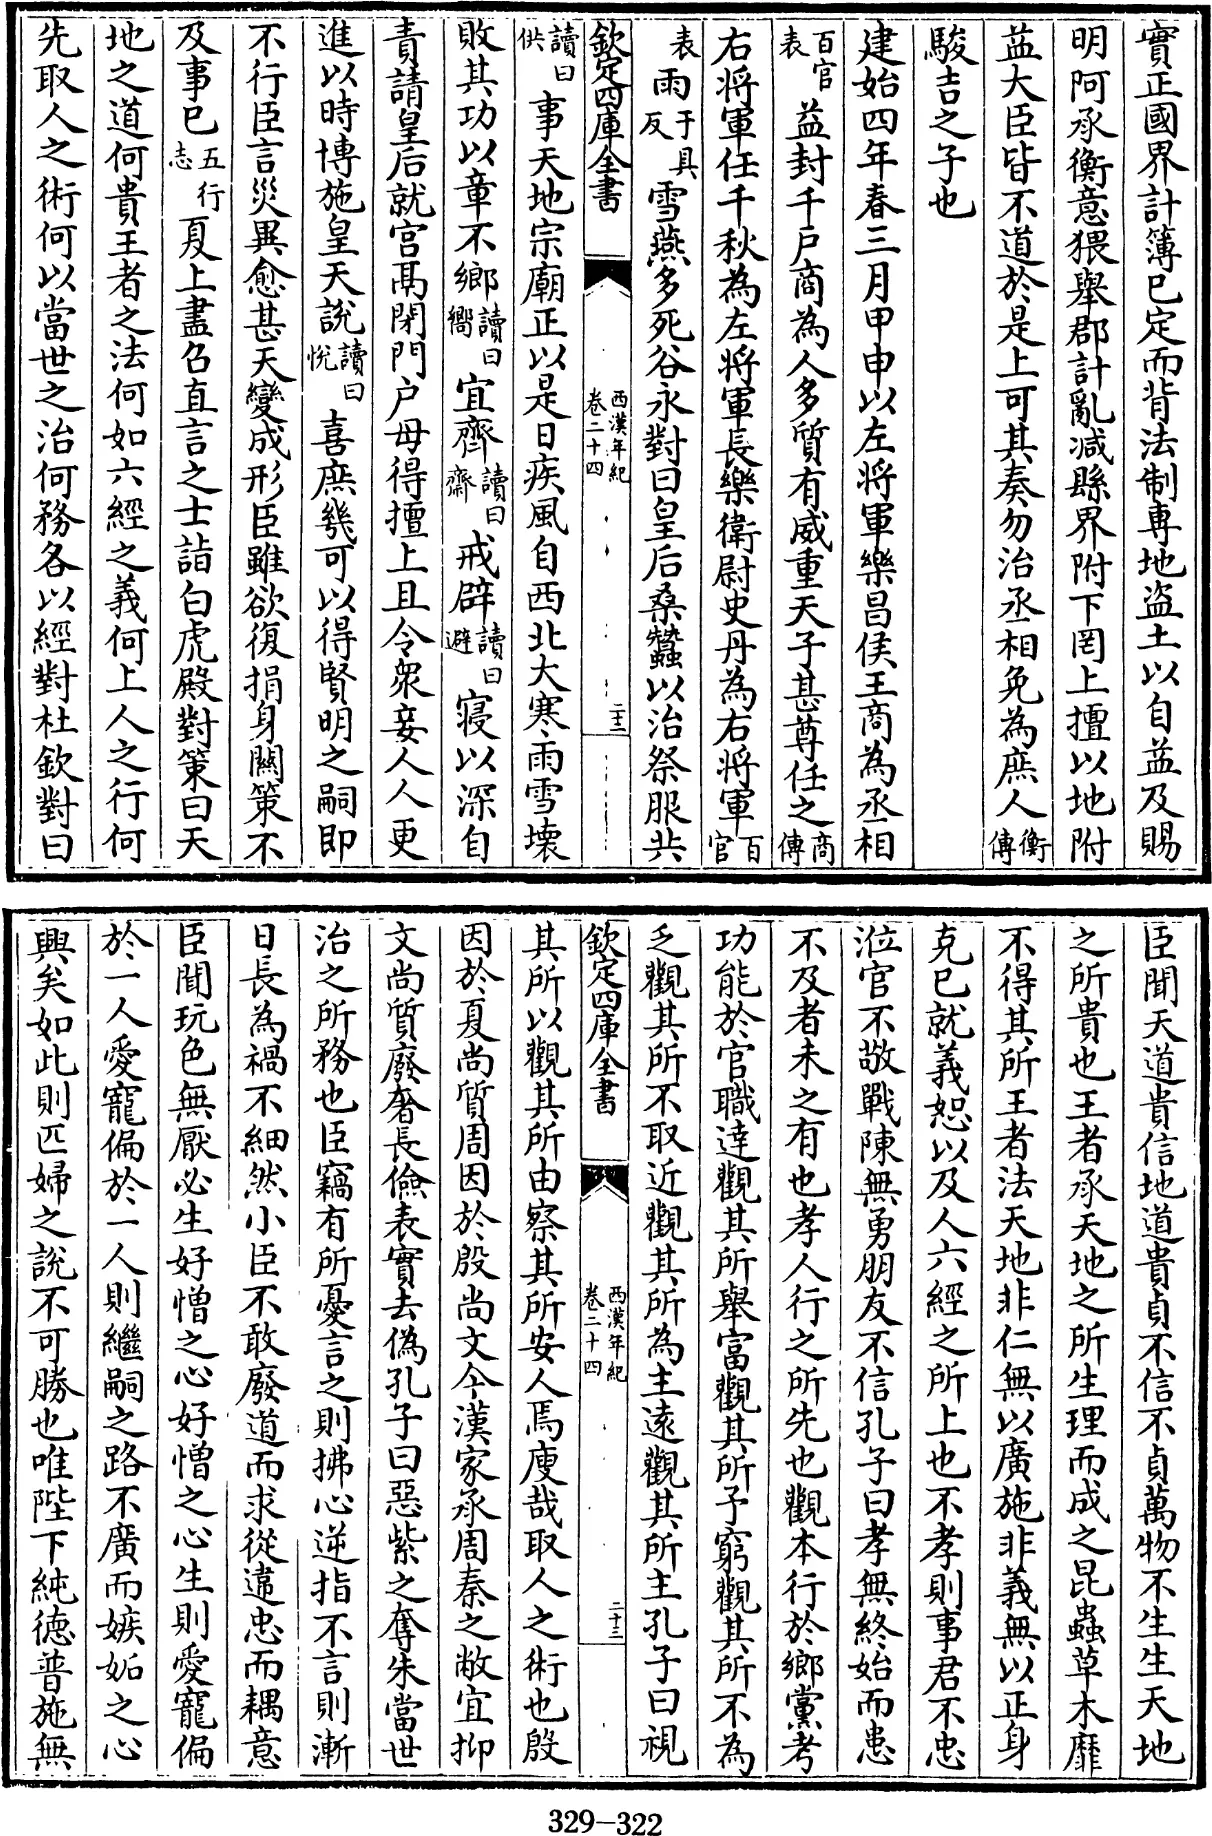 實正國界計簿已定而背法制專地盜土以自益及賜
明阿承衡意猥舉郡計亂减縣界附下罔上擅以地附
益大臣皆不道於是上可其奏勿治丞相免為庶人衡傳
駿吉之子也
建始四年春三月甲申以左將軍樂昌侯王商為丞相
百官表益封千戶商為人多質有威重天子甚尊任之商傳
右將軍任千秋為左將軍長樂衛尉史丹為右將軍百官
表雨于具反雪燕多死谷永對曰皇后桑蠶以治祭服共
欽定四庫全書
西漢年紀
卷二十四
二十三
讀曰供事天地宗廟正以是日疾風自西北大寒雨雪壞
敗其功以章不鄉讀曰嚮宜齊讀曰齋戒辟讀曰避寢以深自
責請皇后就宮鬲閉門户毋得擅上且令衆妾人人更
進以時博施皇天說讀曰悅喜庶幾可以得賢明之嗣即
不行臣言災異愈甚天變成形臣雖欲復捐身關策不
及事已五行志夏上盡召直言之士詣白虎殿對策曰天
地之道何貴王者之法何如六經之義何上人之行何
先取人之術何以當世之治何務各以經對杜欽對曰
臣聞天道貴信地道貴貞不信不貞萬物不生生天地
之所貴也王者承天地之所生理而成之昆蟲草木靡
不得其所王者法天地非仁無以廣施非義無以正身
克己就義恕以及人六經之所上也不孝則事君不忠
涖官不敬戰陳無勇朋友不信孔子曰孝無終始而患
不及者未之有也孝人行之所先也觀本行於鄉黨考
功能於官職逹觀其所舉富觀其所予窮觀其所不為
乏觀其所不取近觀其所為主遠觀其所主孔子曰視
欽定四庫全書
西漢年紀
卷二十四
二十三
其所以觀其所由察其所安人焉廋哉取人之術也殷
因於夏尚質周因於殷尚文今漢家承周秦之敝宜抑
文尚質廢奢長儉表實去偽孔子曰惡紫之奪朱當世
治之所務也臣竊有所憂言之則拂心逆指不言則漸
日長為禍不細然小臣不敢廢道而求從違忠而耦意
臣聞玩色無厭必生好憎之心好憎之心生則愛寵偏
於一人愛寵偏於一人則繼嗣之路不廣而嫉妬之心
興矣如此則匹婦之說不可勝也唯陛下純德普施無
329-322